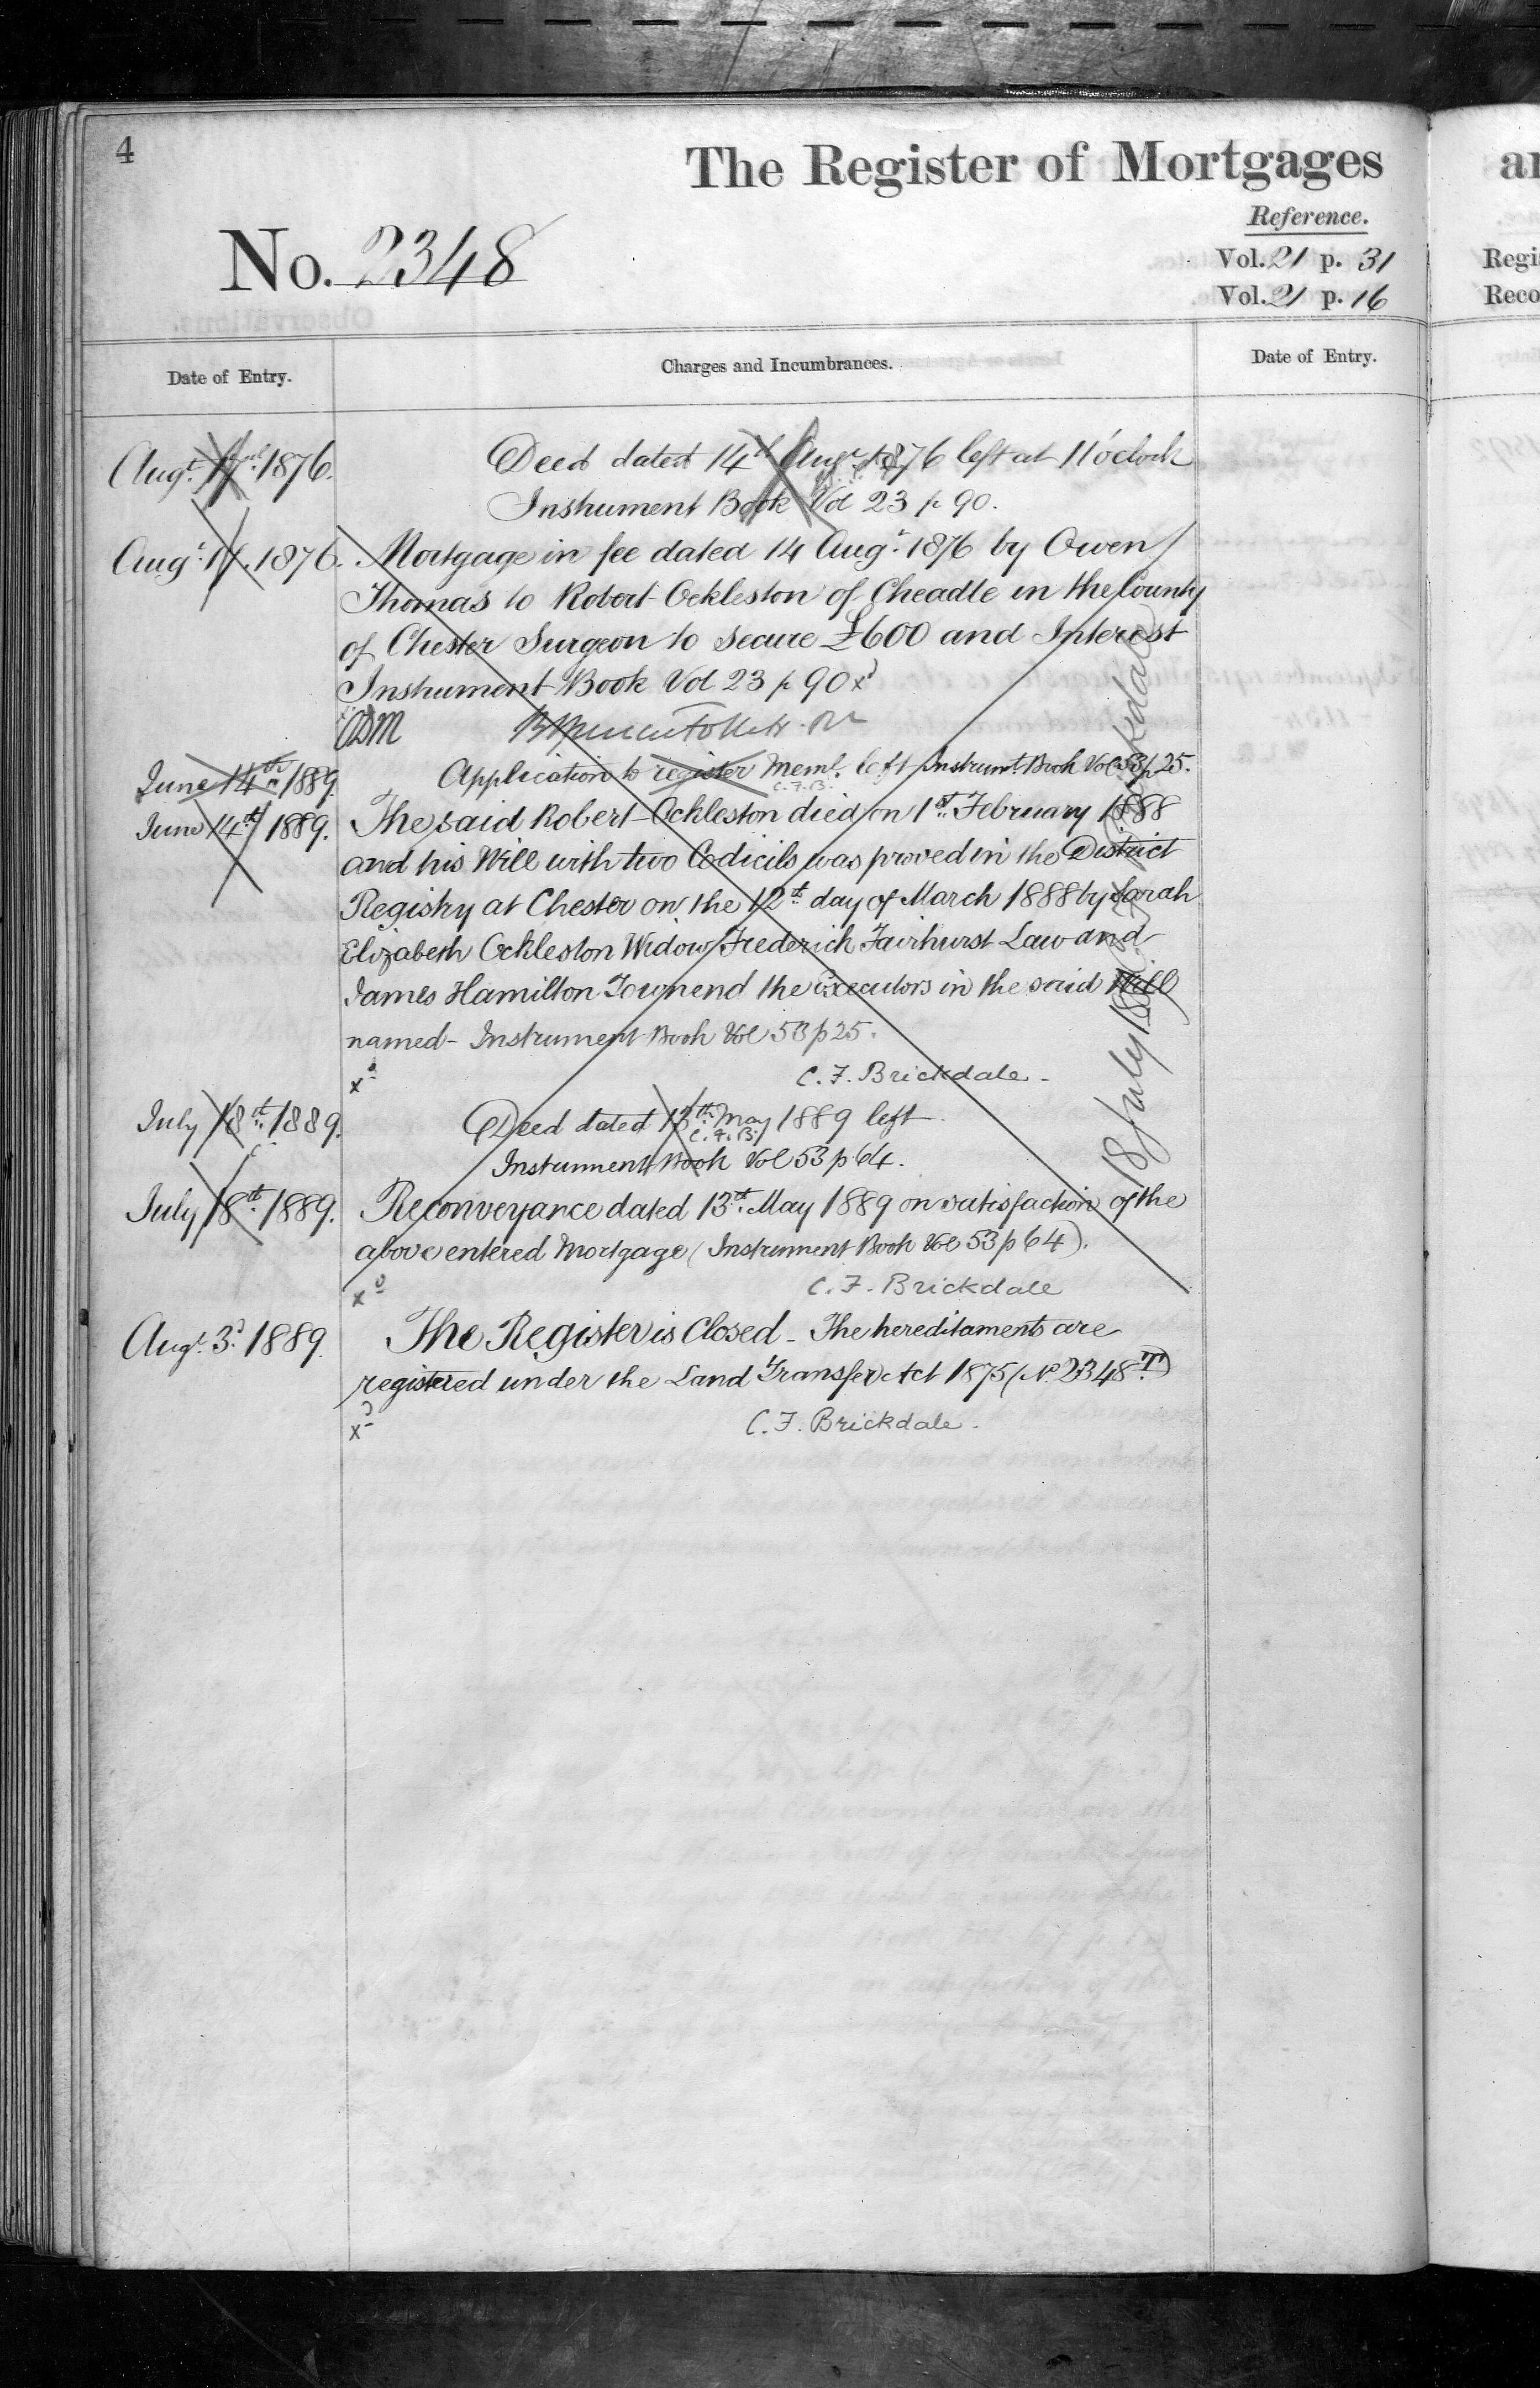 4
The Register of Mortgages
Reference.
No. 2348
Vol. 21 p. 31
Vol. 21 p. 16
Date of Entry.
Charges and Incumbrances.
Date of Entry.
Augt. 17 1876.
Deed dated 14th Augt. 1876 left at 11 o'clock
Instrument Book Vol 23 p 90.
Augt. 1876.
Mortgage in fee dated 14 Augt. 1876 by Owen
Thomas to Robert Ockleston of Cheadle in the County
of Chester Surgeon to secure £600 and Interest
Instrument Book Vol 23 p 90 xd
June 14th 1889.
Application to register Meml. left Instrumt. Book Vol 53 p 25.
C.F.B.
June 14th 1889.
The said Robert Ockleston died on 1st February 1888
and his Will with two Codicils was proved in the District
Registry at Chester on the 12th day of March 1888 by Sarah
Elizabeth Ockleston Widow Frederick Fairhurst Law and
James Hamilton Townend the Executors in the said Will
named - Instrument Book Vol 53 p 25.
xd
C. F. Brickdale -
July 18th 1889.
Deed dated 13th May 1889 left
C.F.B.
Instrument Book Vol 53 p 64.
July 18th 1889.
Reconveyance dated 13th May 1889 on satisfaction of the
above entered Mortgage (Instrument Book Vol 53 p 64).
xd
C. F. Brickdale
18 July 1889 C. F. Brickdale
Augt. 3d 1889.
The Register is Closed - The hereditaments are
registered under the Land Transfer Act 1875 (No. 2348 T)
xd
C. F. Brickdale.
Regi
Reco